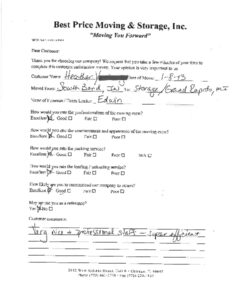 Best Price Moving & Storage, Inc.
"Moving You Forward"
Dear Customer:
Thank you for choosing our company! We request that you take a few minutes of your time to
complete this customer information survey. Your opinion is very important to us.
Customer Name Heather Date of Move: 1-8-13
Moved From South Bend, IN To Storage/Grand Rapids, MI
Name of Foreman / Team Leader Edwin
How would you rate the professionalism of the moving crew?
Excellent Good Fair Poor
How would you rate the and appearance of the moving crew?
Excellent Good Fair Poor
How would you rate the packing service?
Excellent Good Fair Poor N/A
How would you rate the loading / unloading service?
Excellent Good Fair Poor
How likely are you to recommend our company to others?
Excellent Good Fair Poor
May we use you as a reference?
Yes No
Customer comments:
Very nice + professional staff - super efficient